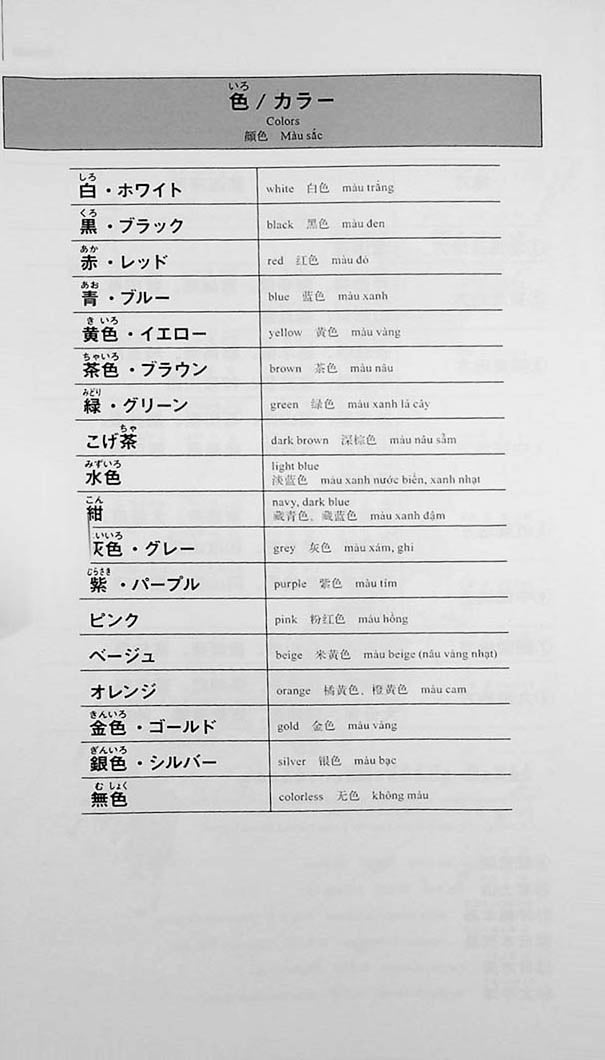 いろ
色 / カラー
Colors
顔色 Màu sắc
しろ
白・ホワイト white 白色 màu trắng
くろ
黒・ブラック black 黑色 màu đen
あか
赤・レッド red 红色 màu đỏ
あお
青・ブルー blue 蓝色 màu xanh
き いろ
黄色・イエロー yellow 黄色 màu vàng
ちゃいろ
茶色・ブラウン brown 茶色 màu nâu
みどり
緑・グリーン green 绿色 màu xanh lá cây
ちゃ
こげ茶 dark brown 深棕色 màu nâu sẫm
みずいろ
水色 light blue
淡蓝色 màu xanh nước biển, xanh nhạt
こん
紺 navy, dark blue
藏青色、藏蓝色 màu xanh đậm
いいろ
灰色・グレー grey 灰色 màu xám, ghi
むらさき
紫・パープル purple 紫色 màu tím
ピンク pink 粉红色 màu hồng
ベージュ beige 米黄色 màu beige (nâu vàng nhạt)
オレンジ orange 橘黄色、橙黄色 màu cam
きんいろ
金色・ゴールド gold 金色 màu vàng
ぎんいろ
銀色・シルバー silver 银色 màu bạc
む しょく
無色 colorless 无色 không màu